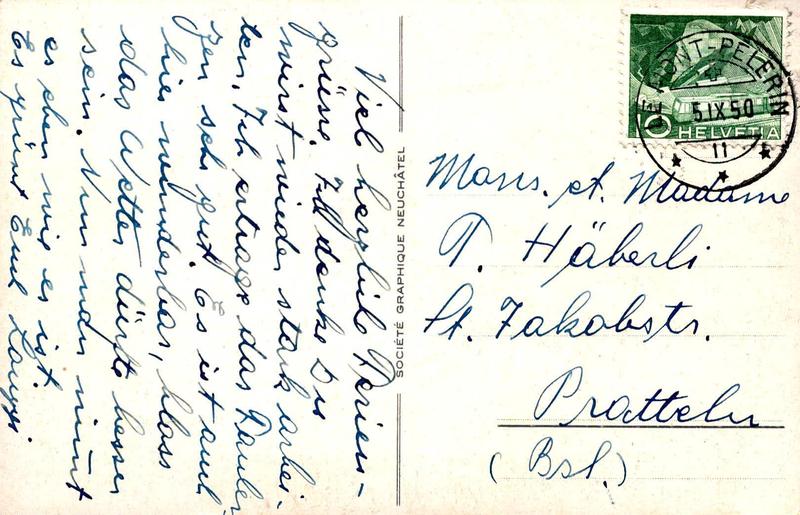 Viel herzliche Ferien-
grüsse. Ich denke Du
wirst wieder stark arbei-
ten. Ich ertrage das Faulen-
zen sehr gut. Es ist auch
hier wunderbar, bloss
das Wetter dürfte besser
sein. Nun man nimmt
es eben wie es ist.
Es grüsst Euch
SOCIÉTÉ GRAPHIQUE NEUCHÂTEL
LE MONT-PELERIN
5.IX.50
11
10 HELVETIA
Mons. et. Madame
T. Häberli
St. Jakobstr.
Pratteln
(Bsl.)